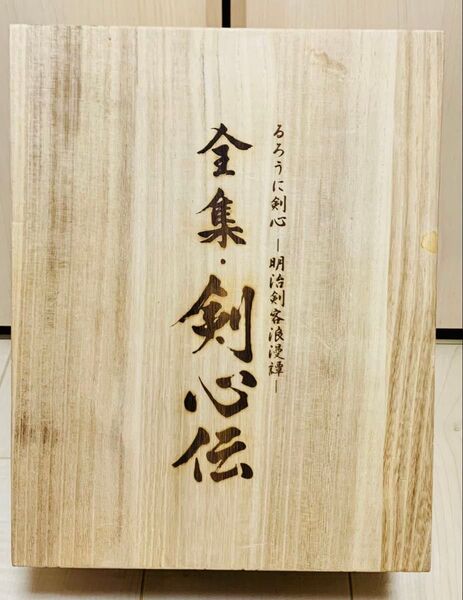 るろうに剣心 ―明治剣客浪漫譚―
全集・剣心伝